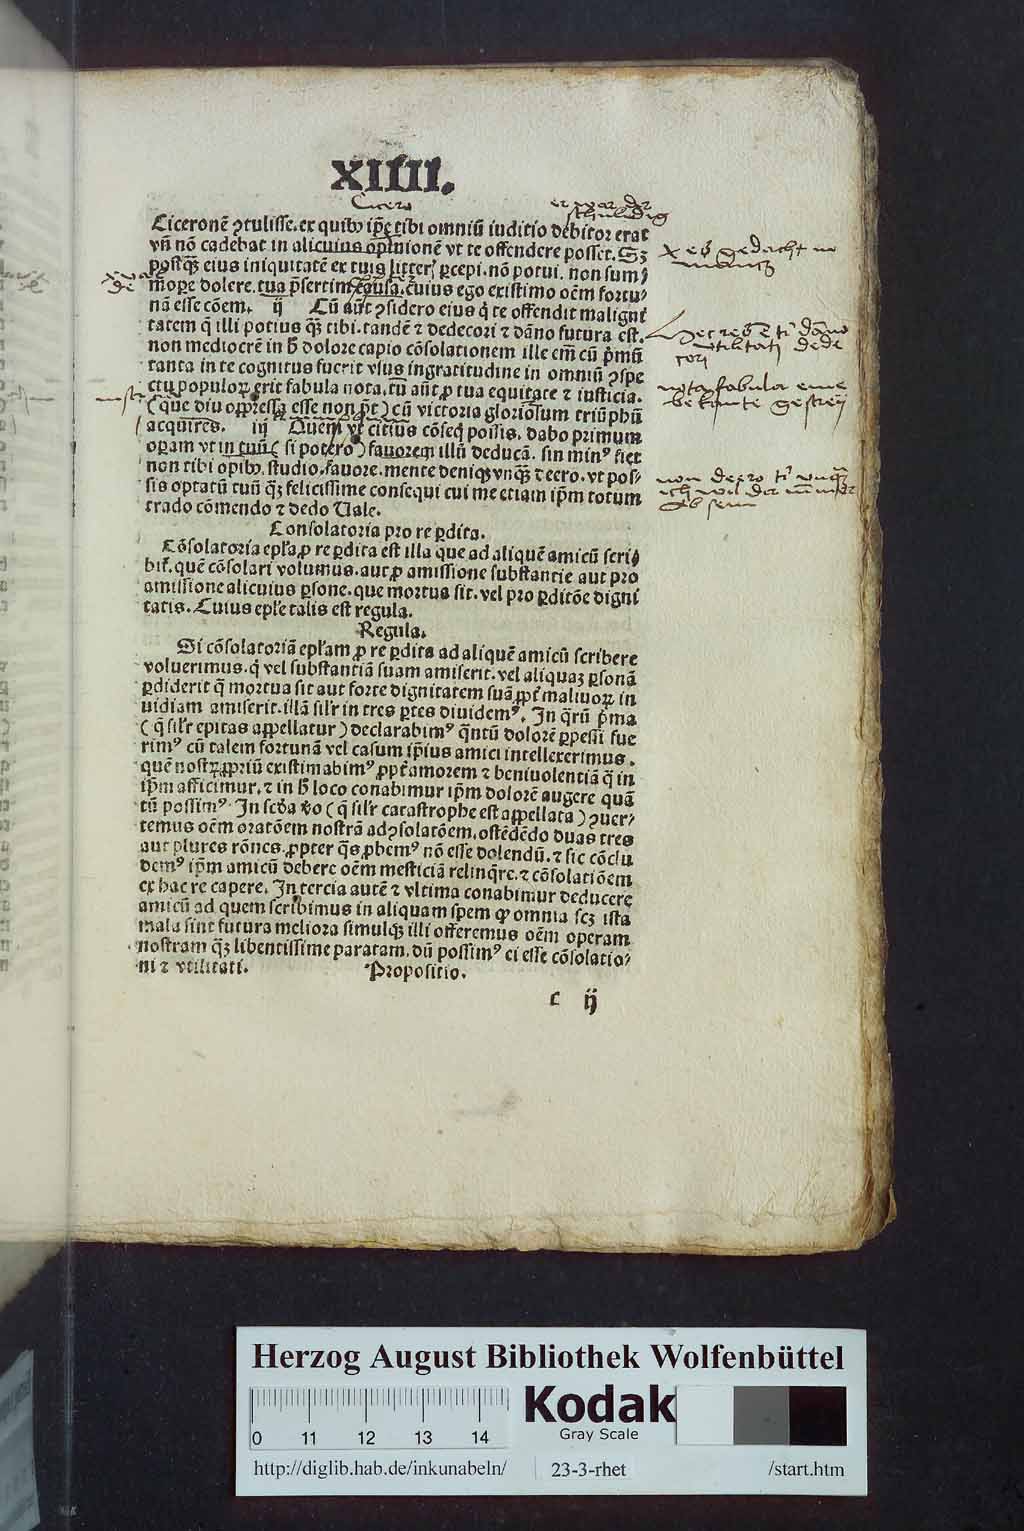 XIIII.
Cicero
er war der
schuldig
Ciceronē ꝯtulisse. ex quibꝫ ip̄e tibi omniū iuditio debitor erat
vn̄ nō cadebat in alicuius opinionē vt te offendere posset. Sꝫ
postqꝫ eius iniquitatē ex tuis litteris ꝑcepi. nō potui. non sum/
mope dolere. tua p̄sertim causa. cuius ego existimo oēm fortu/
nā esse cōem. ij Cū aūt ꝯsidero eius q̄ te offendit maligni
tatem q̄ illi potius qꝫ tibi. tandē ⁊ dedecori ⁊ dāno futura est.
non mediocrē in h̄ dolore capio cōsolationem ille em̄ cū p̄mū
tanta in te cognitus fuerit vsus ingratitudine in omniū ꝯspe
ctu populoꝝ erit fabula nota. tū aūt ꝓ tua equitate ⁊ iusticia.
(que diu oppressa esse non p̄t) cū victoria gloriosum triūphū
acquires. iij Quem vt citius cōseq̄ possis. dabo primum
operam vt in tuū (si potero) fauorem illū deducā. sin min⁹ fiet
non tibi opibꝫ. studio. fauore. mente deniqꝫ vnqꝫ deero. vt pos/
sis optatū tuū qꝫ felicissime consequi cui me etiam ip̄m totum
trado cōmendo ⁊ dedo Uale.
Consolatoria pro re ꝑdita.
Cōsolatoria epl̄a ꝓ re ꝑdita est illa que ad aliquē amicū scri/
bit̄. quē cōsolari volumus. aut ꝓ amissione substantie aut pro
amissione alicuius ꝑsone. que mortua sit. vel pro ꝑditōe digni
tatis. Cuius epl̄e talis est regula.
Regula.
Si cōsolatoriā epl̄am ꝓ re ꝑdita ad aliquē amicū scribere
voluerimus. q̄ vel substantiā suam amiserit. vel aliquaꝫ ꝑsonā
ꝑdiderit q̄ mortua sit aut forte dignitatem suā ꝓpt̄ maliuoꝝ in
uidiam amiserit. illā sil̄r in tres ꝑtes diuidem⁹. In q̄rū p̄ma
(q̄ sil̄r epitas appellatur) declarabim⁹ q̄ntū dolorē ꝑpessi fue
rim⁹ cū talem fortunā vel casum ip̄ius amici intellexerimus.
quē nostꝝ ꝓpriū existimabim⁹ ꝓpt̄ amorem ⁊ beniuolentiā q̄ in
ip̄m afficimur. ⁊ in h̄ loco conabimur ip̄m dolorē augere quā
tū possim⁹. In scd̄a v̄o (q̄ sil̄r catastrophe est appellata) ꝯuer/
temus oēm oratōem nostrā ad ꝯsolatōem. ostēdēdo duas tres
aut plures rōnes. ꝓpter q̄s ꝓbem⁹ nō esse dolendū. ⁊ sic cōclu
dem⁹ ip̄m amicū debere oēm mesticiā relinq̄re. ⁊ cōsolatiōem
ex hac re capere. In tercia autē ⁊ vltima conabimur deducere
amicū ad quem scribimus in aliquam spem ꝙ omnia scꝫ ista
mala sint futura meliora simulqꝫ illi offeremus oēm operam
nostram qꝫ libentissime paratam. dū possim⁹ ei esse cōsolatio/
ni ⁊ vtilitati. Propositio.
c ij
nota fabula eine
bekante
non deero
Herzog August Bibliothek Wolfenbüttel
0 11 12 13 14
Kodak
Gray Scale
http://diglib.hab.de/inkunabeln/ 23-3-rhet /start.htm